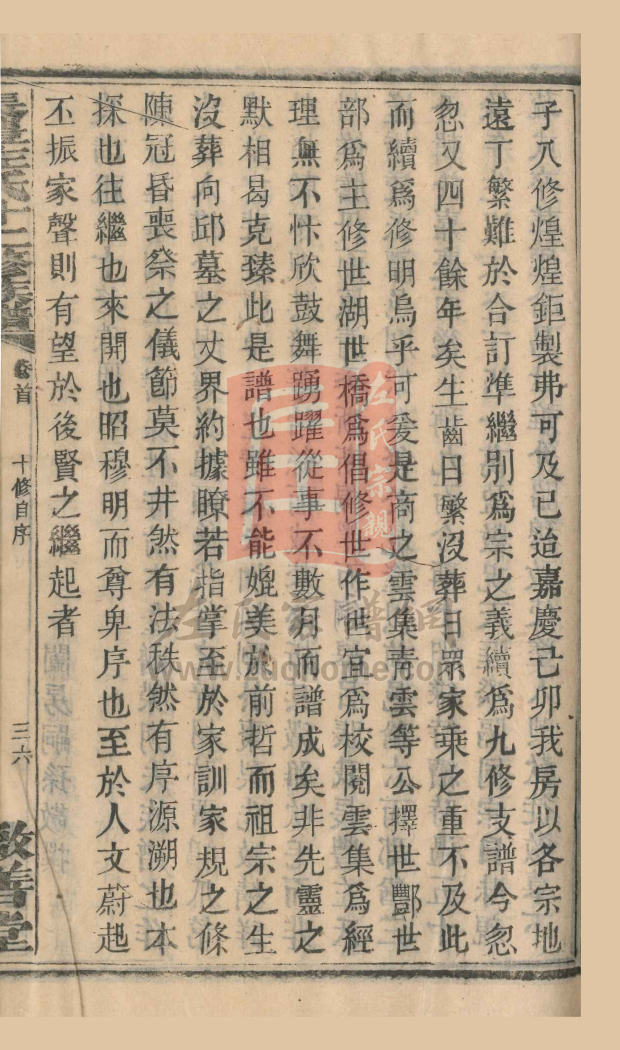 子八修煌煌鉅製弗可及已迨嘉慶己卯我房以各宗地
遠丁繁難於合訂準繼別爲宗之義續爲九修支譜今忽
忽又四十餘年矣生齒日繁沒葬日眾家乘之重不及此
而續爲修明烏乎可爰是商之雲集青雲等公擇世酆世
部爲主修世湖世橋爲倡修世作世宜爲校閱雲集爲經
理無不忭欣鼓舞踴躍從事不數月而譜成矣非先靈之
默相曷克臻此是譜也雖不能媲美於前哲而祖宗之生
沒葬向邱墓之丈界約據瞭若指掌至於家訓家規之條
陳冠昏喪祭之儀節莫不井然有法秩然有序源溯也本
探也往繼也來開也昭穆明而尊卑序也至於人文蔚起
丕振家聲則有望於後賢之繼起者
左氏十一修族譜 卷首 十修自序 三六 敬善堂
左氏宗親
www.zuohome.com